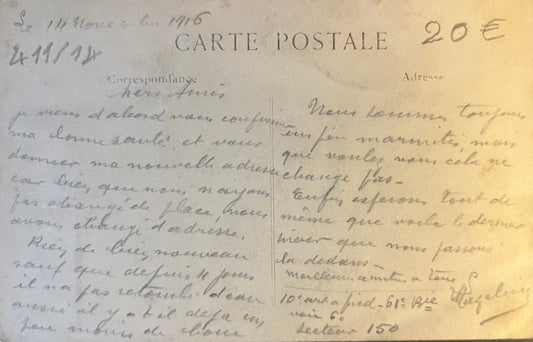 Le 14 Novembre 1916
411/14
20 €
CARTE POSTALE
Correspondance
Adresse
chers Amis
je viens d'abord vous confirmer
ma bonne santé et vous
donner ma nouvelle adresse
car bien que nous n'ayons
pas changé de place, nous
avons changé d'adresse.
Rien de bien nouveau
sauf que depuis 4 jours
il n'a pas retombé d'eau
aussi il y a t-il déjà un
peu moins de
Nous sommes toujours
un peu marmités, mais
que voulez vous cela ne
change pas-
Enfin esperons tout de
même que voila le dernier
hiver que nous passons
la dedans-
meilleur amitié a tous
10e art a pied- 61e Bie
voie 6e
Secteur 150